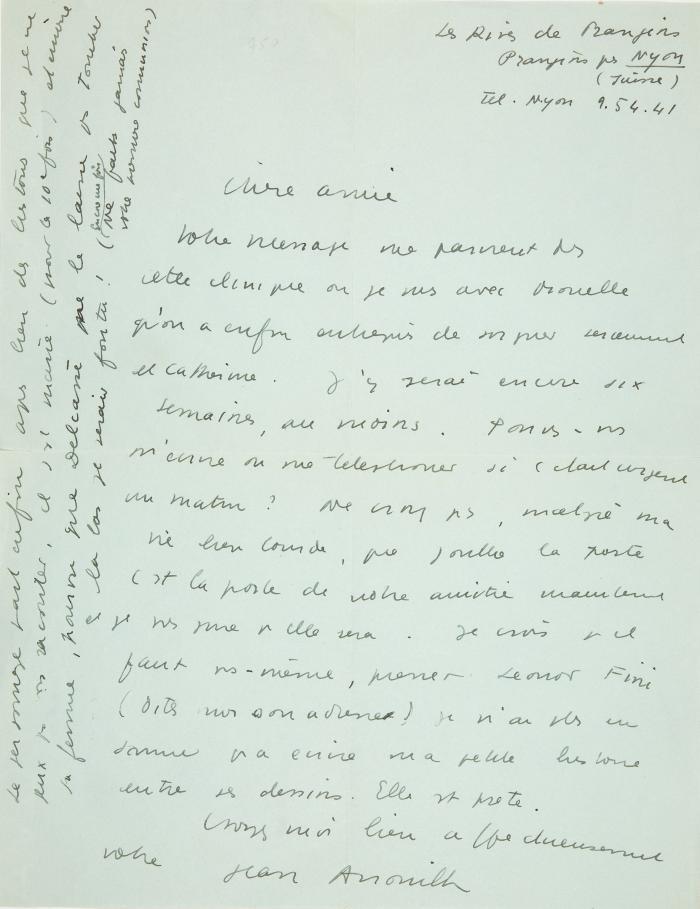 Les Rives de Prangins
Prangins ps Nyon
(Suisse)
Tel. Nyon 9.54.41
Chère amie
Votre message me parvient ds
cette clinique où je suis avec Monelle
qu'on a enfin entrepris de soigner sérieusement
et Catherine. J'y serai encore six
semaines, au moins. Pouvez-vs
m'écrire ou me téléphoner si c'était urgent
un matin? Ne croyez ps, malgré ma
vie bien lourde, que j'oublie la
c'est la de votre amitié maintenant
je sais que elle sera. Je crois qu'il
faut vs-même, presser Leonor Fini
(Dites moi son adresse) je n'ai ds un
somme qu'à écrire ma petite histoire
entre ses dessins. Elle est prête.
Croyez moi bien affectueusement
votre Jean Anouilh
Le personnage tant enfin après bien des histoires que je ne
peux ps vs raconter, il s'est marié (pour la 10e fois) et aime
sa femme, pourvu que Delcassé me le laisse vs toucher
et la bas je serais foutu! (Ne faites jamais
encore une fois
votre dernière communion)